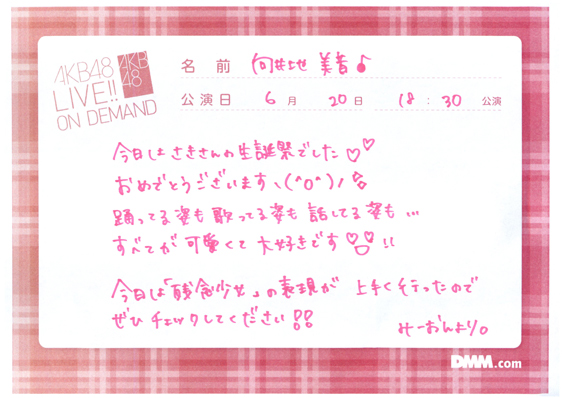 AKB48
LIVE!!
ON DEMAND
AKB
48
名 前 向井地 美音♪
公演日 6 月 20 日 18 : 30 公演
今日はさきさんの生誕祭でした♡♡
おめでとうございますヽ(^o^)ノ
踊ってる姿も歌ってる姿も話してる姿も…
すべてが可愛くて大好きです!!
今日は「残念少女」の表現が 上手く行ったので
ぜひチェックしてください!!
みーおんより。
DMM.com